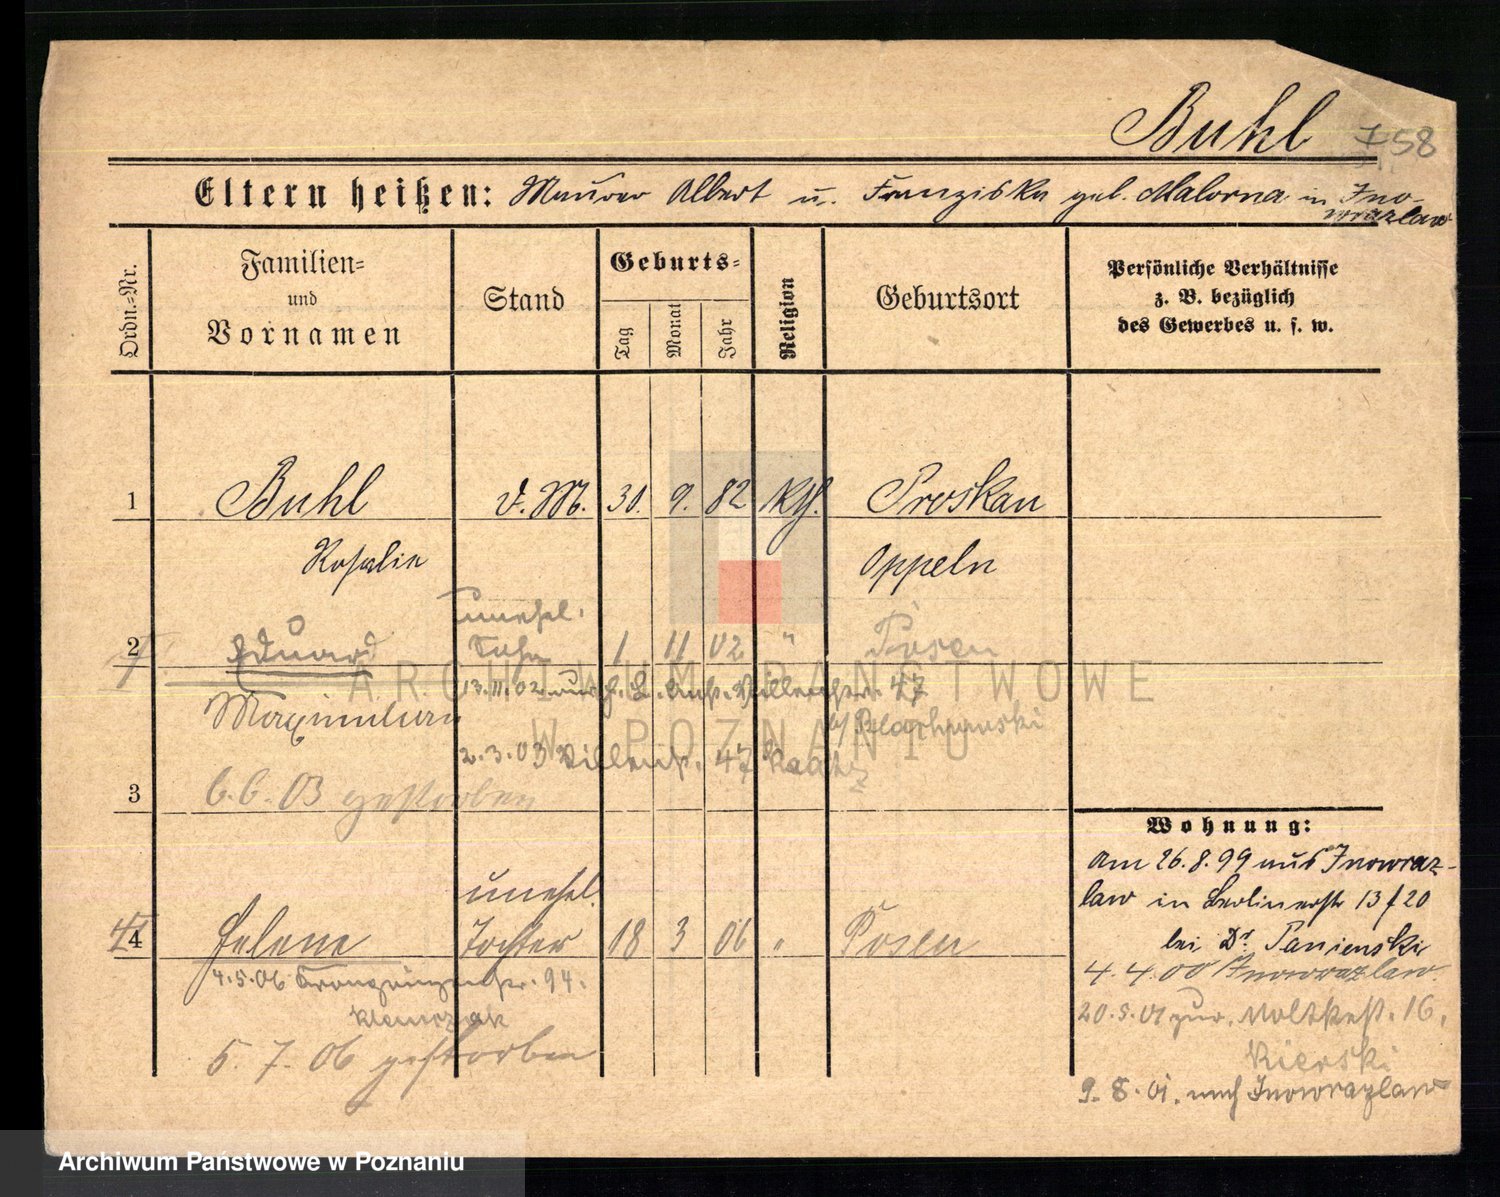 Buhl 58
Eltern heißen: Maurer Albert u. Franziska geb. Malorna in Ino-
wrazlaw
Ordn.-Nr.
Familien-
und
Vornamen
Stand
Geburts-
Tag
Monat
Jahr
Religion
Geburtsort
Persönliche Verhältnisse
z. B. bezüglich
des Gewerbes u. s. w.
1 Buhl d. M. 30. 9. 82 kth. Proskau
Rosalie Oppeln
unehel.
2 Eduard Sohn 1 11 02 " Posen
13.11.02 47
Maximilian
2.3.03 47
3 6.6.03 gestorben
unehel.
4 Helene Tochter 18 3 06 " Posen
4.5.06 Kronprinzenstr. 94.
5.7.06 gestorben
Wohnung:
Am 26.8.99 aus Inowraz-
law in Berlinerstr 13 f 20
bei Dr Panienski
4.4.00 Inowrazlaw
20.5.01 zur. Moltkestr. 16,
Kierski
9.8.01. nach Inowrazlaw
ARCHIWUM PAŃSTWOWE
W POZNANIU
Archiwum Państwowe w Poznaniu